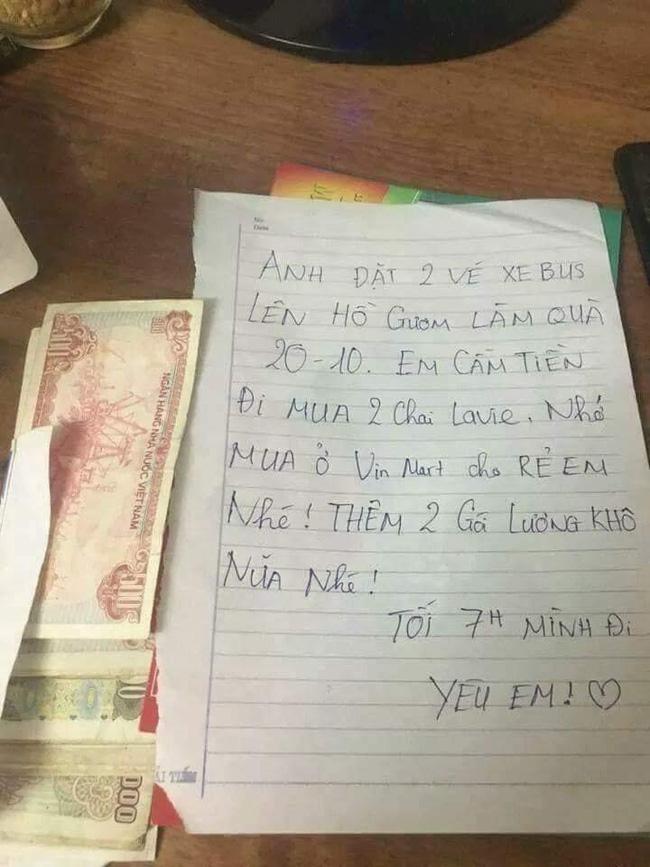 No:
Date:
ANH ĐẶT 2 VÉ XE BUS
LÊN HỒ GƯƠM LÀM QUÀ
20-10. EM CẦM TIỀN
ĐI MUA 2 Chai Lavie. Nhớ
MUA Ở Vin Mart cho RẺ EM
Nhé! THÊM 2 Gó LƯƠNG KHÔ
NỮA Nhé!
TỐI 7H MÌNH ĐI
YÊU EM! ♡
NGÂN HÀNG NHÀ NƯỚC VIỆT NAM